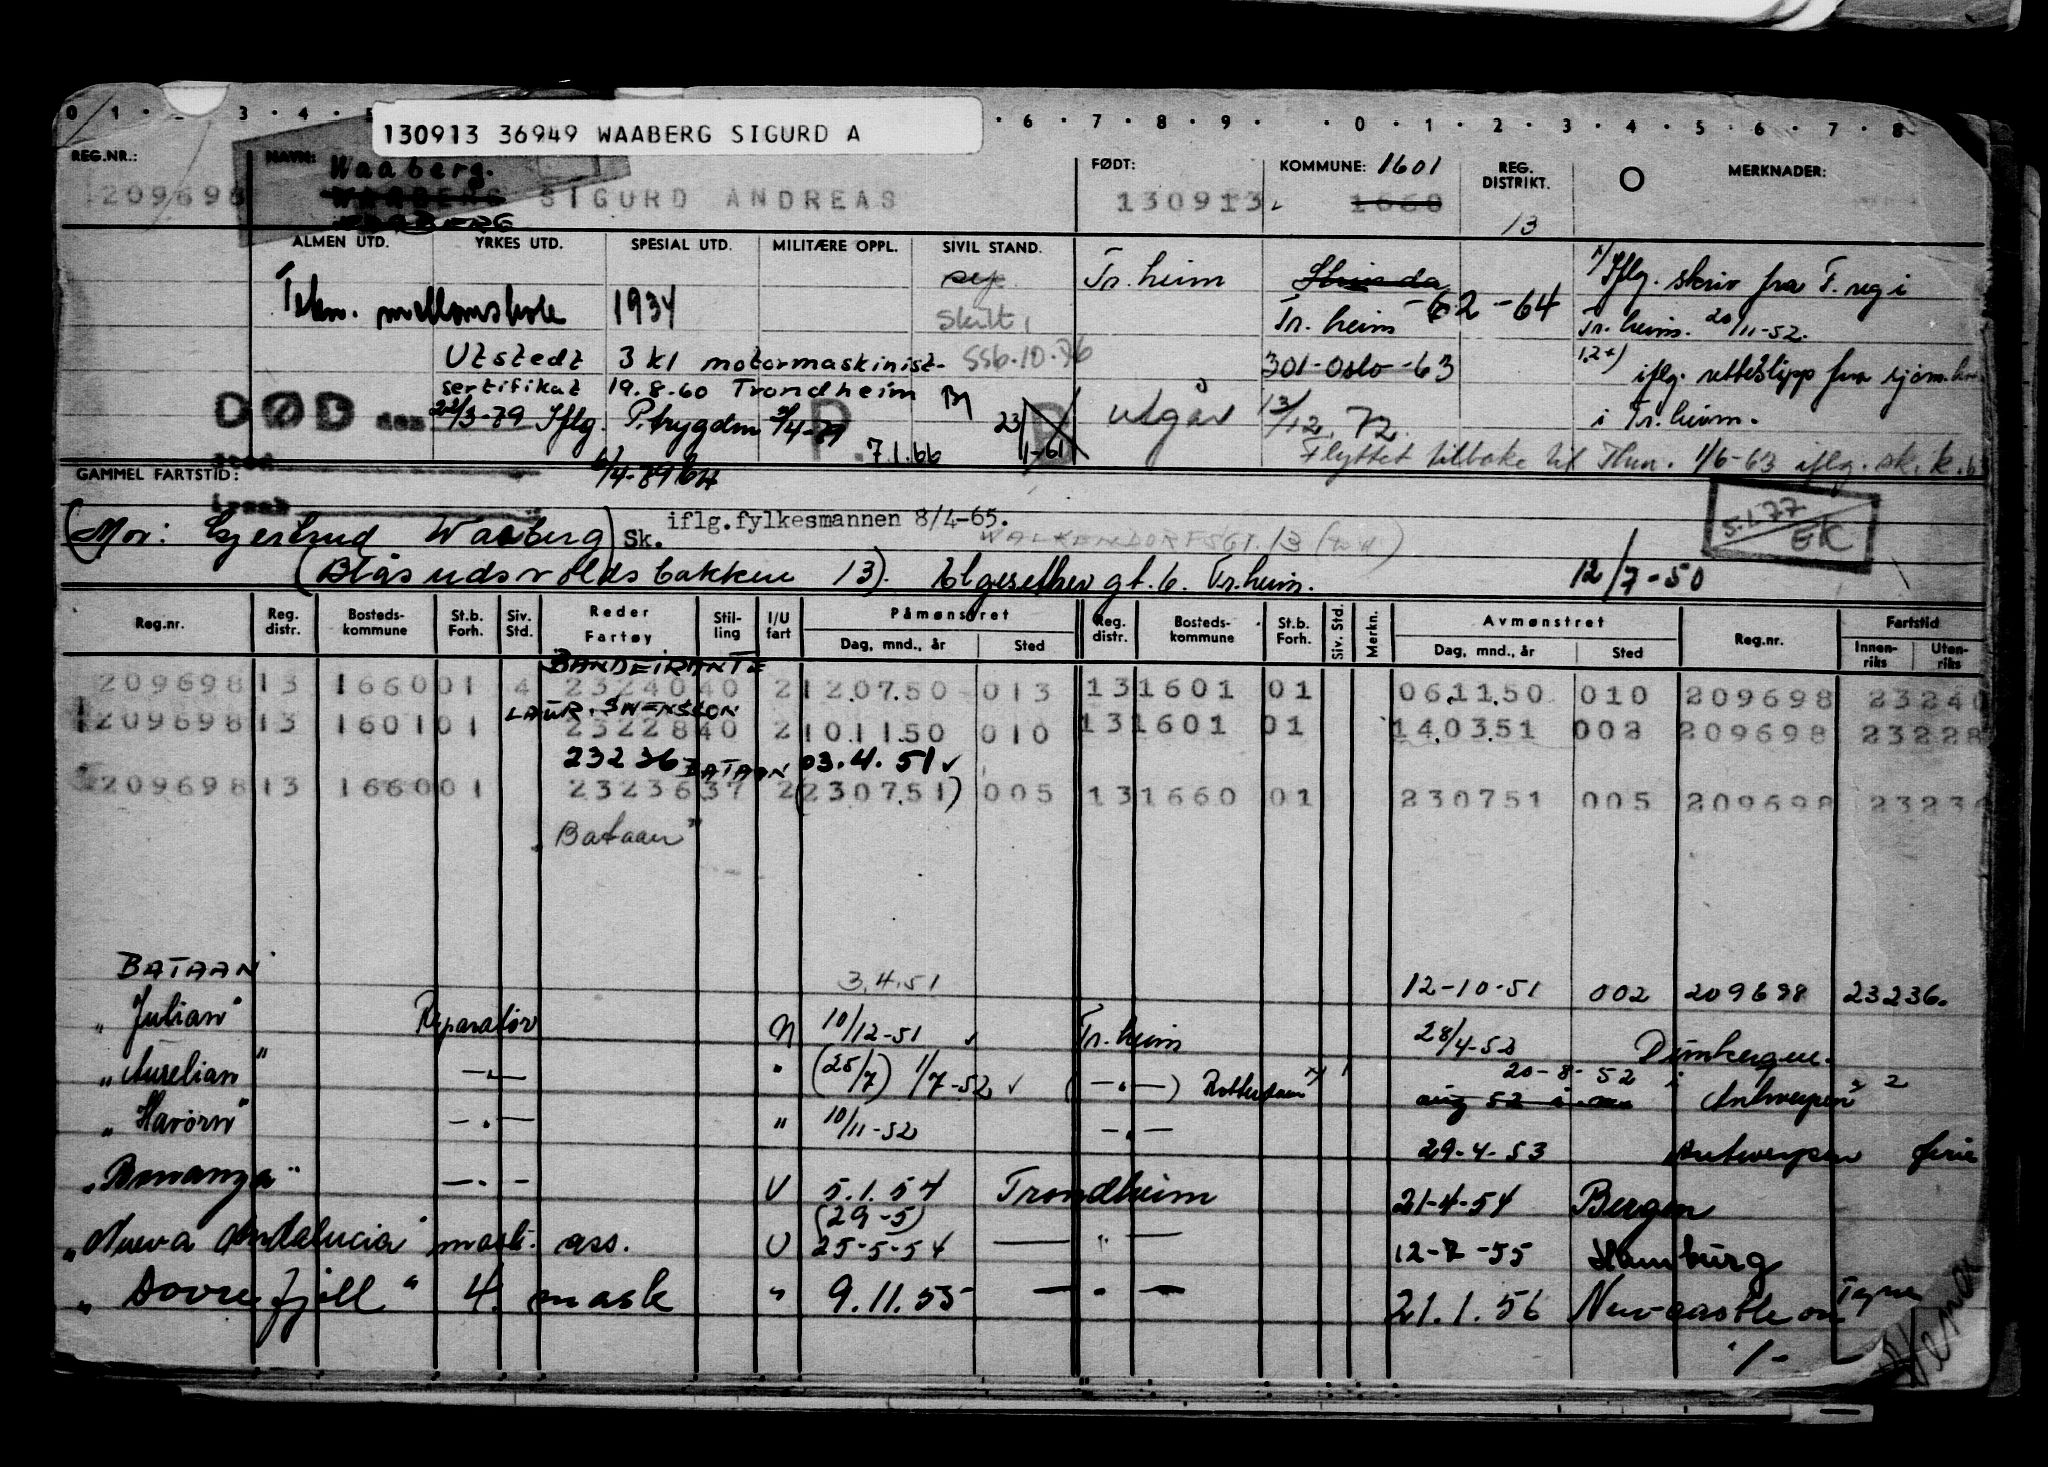 0 1 . . 3 . 4 . 5 . 6 . 7 . 8 . 9 . . 0 . 1 . 2 . 3 . 4 . 5 . 6 . 7 . 8
130913 36949 WAABERG SIGURD A
REG.NR.: NAVN: Waaberg. FØDT: KOMMUNE: 1601 REG. DISTRIKT. O MERKNADER:
209698 WAABERG SIGURD ANDREAS 130913 1660 13
ALMEN UTD. YRKES UTD. SPESIAL UTD. MILITÆRE OPPL. SIVIL STAND.
Tekn. mellomskole 1934 sep. Tr.heim Strinda
Skilt, Tr.heim -62-64
Utstedt 3 kl motormaskinist- SSb.10.76 301-Oslo-63
sertifikat 19.8.60 Trondheim
DØD den 22/3-79 Iflg. P.trygdm 3/4-79 P. 7.1.66 23/1-61 utgår 13/12.72
x/ Iflg. skriv fra T.reg i
Tr.heim. 20/11-52.
iflg. retteslipp fra sjøm.
i Tr.heim.
Flyttet tilbake til 1/6-63 iflg. sk.k.
GAMMEL FARTSTID: 6/4-79
(Mor: Gjertrud Waaberg) Sk. iflg.fylkesmannen 8/4-65.
WALKENDORFSGT. 13
5.1.77
EK
(Blåsudsvoldsbakken 13). Elgesether gt. 6. Tr.heim. 12/7-50
Reg.nr. Reg. distr. Bosteds-kommune St.b. Forh. Siv. Std. Reder Fartøy Stil-ling I/U fart Påmønstret Dag, mnd., år Sted Reg. distr. Bosteds-kommune St.b. Forh. Siv. Std. Merkn. Avmønstret Dag, mnd., år Sted Reg.nr. Fartstid Innen-riks Uten-riks
BANDEIRANTE
209698 13 1660 01 4 23240 40 2 120750 013 13 1601 01 061150 010 209698 23240
LAUR. SWENSSON
209698 13 1601 01 23228 40 2 101150 010 13 1601 01 140351 002 209698 23228
23236 BATAAN 03.4.51
209698 13 1660 01 23236 37 2 (230751) 005 13 1660 01 230751 005 209698 23236
"Bataan"
BATAAN 3.4.51 12-10-51 002 209698 23236.
"Julian" Reparatør N 10/12-51 Tr.heim 28/4-52 Dünkerque.
"Aurelian" —"— " (25/7) 1/7-52 (—"—) Rotterdam 20-8-52 Antwerpen
aug 52 i
"Havørn" —"— " 10/11-52 —"— 29-4-53 Antwerpen ferie
"Bonanza" —"— U 5.1.54 Trondheim 21-4-54 Bergen
(29-5)
"Nueva Andalucia" mask. ass. U 25-5-54 —"— 12-7-55 Hamburg
"Dovrefjell" 4. mask " 9.11.55 —"— 21.1.56 Newcastle on Tyne